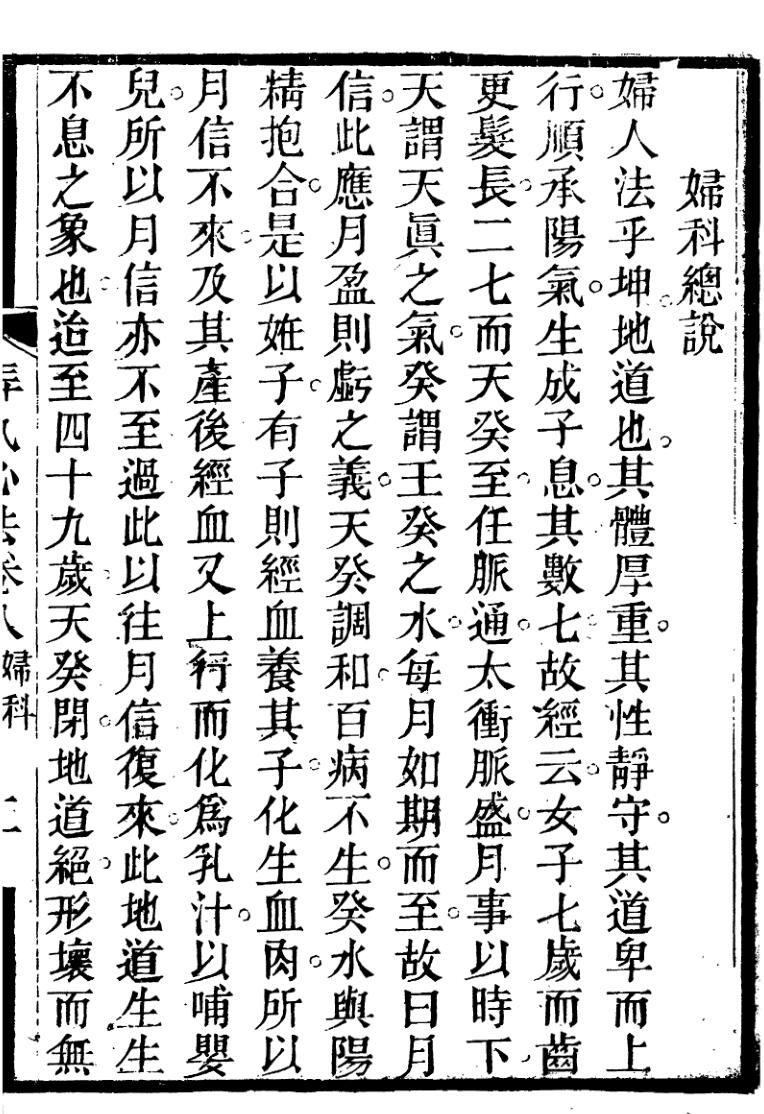 婦科總說
婦人法乎坤地道也其體厚重其性靜守其道卑而上
行順承陽氣生成子息其數七故經云女子七歲而齒
更髮長二七而天癸至任脈通太衝脈盛月事以時下
天謂天眞之氣癸謂壬癸之水每月如期而至故曰月
信此應月盈則虧之義天癸調和百病不生癸水與陽
精抱合是以姙子有子則經血養其子化生血肉所以
月信不來及其產後經血又上行而化爲乳汁以哺嬰
兒所以月信亦不至過此以往月信復來此地道生生
不息之象也迨至四十九歲天癸閉地道絕形壞而無
卷八 婦科 二